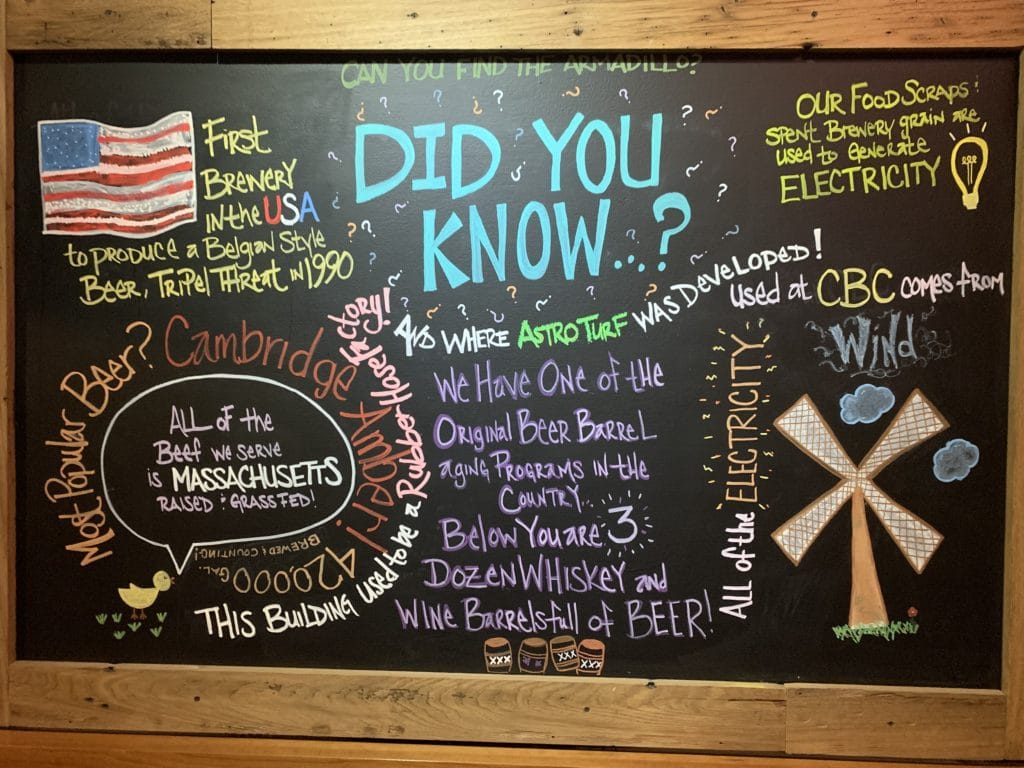 CAN YOU FIND THE ARMADILLO?
DID YOU
KNOW...?
First
Brewery
in the USA
to produce a Belgian Style
Beer, Tripel Threat in 1990
OUR FOOD SCRAPS &
spent Brewery grain are
used to generate
ELECTRICITY
Most Popular Beer?
Cambridge
Amber!
420,000 GAL.
BREWED & COUNTING!
ALL of the
Beef we serve
is MASSACHUSETTS
RAISED & GRASS FED!
THIS BUILDING used to be a Rubber Hose Factory!
AND WHERE ASTROTURF WAS DEVELOPED!
We Have One of the
Original Beer Barrel
aging Programs in the
Country...
Below You are 3
Dozen Whiskey and
Wine Barrels full of BEER!
XXX
XXX
XXX
All of the ELECTRICITY
used at CBC comes from
Wind